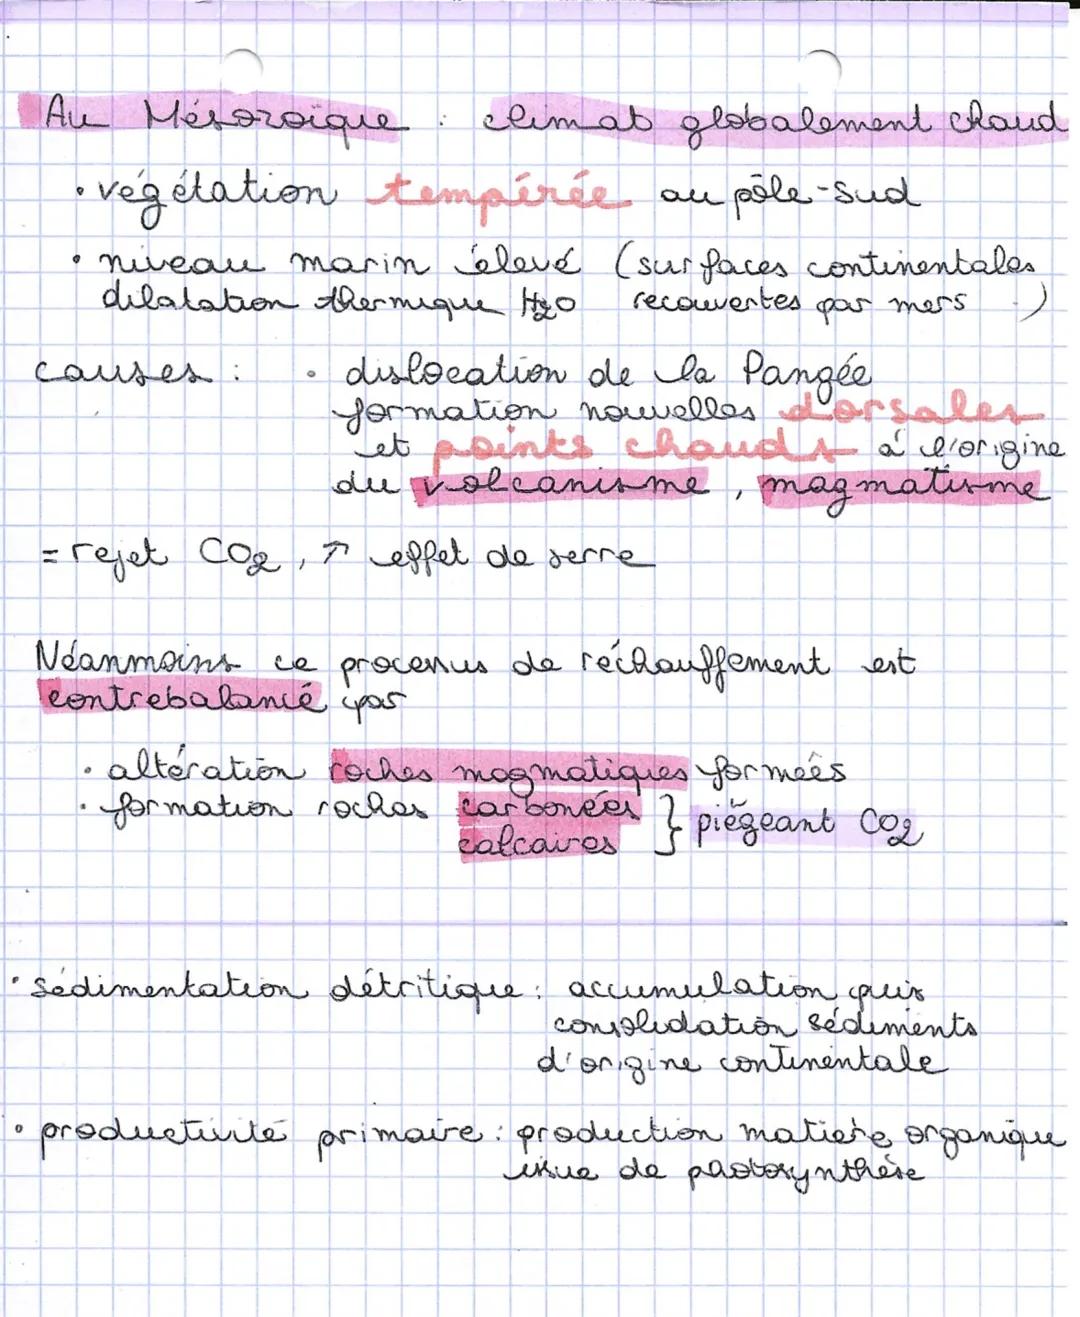 Au Mésozoïque : climat globalement chaud
• végétation tempérée au pôle-sud
• niveau marin élevé (surfaces continentales
dilatation thermique H2O recouvertes par mers )
causes : • dislocation de la Pangée
formation nouvelles dorsales
et points chauds à l'origine
du volcanisme, magmatisme
= rejet CO2, ↗ effet de serre
Néanmoins ce processus de réchauffement est
contrebalancé par
• altération roches magmatiques formées
• formation roches carbonées } piégeant CO2
calcaires
• sédimentation détritique : accumulation puis
consolidation sédiments
d'origine continentale
• productivité primaire : production matière organique
issue de photosynthèse